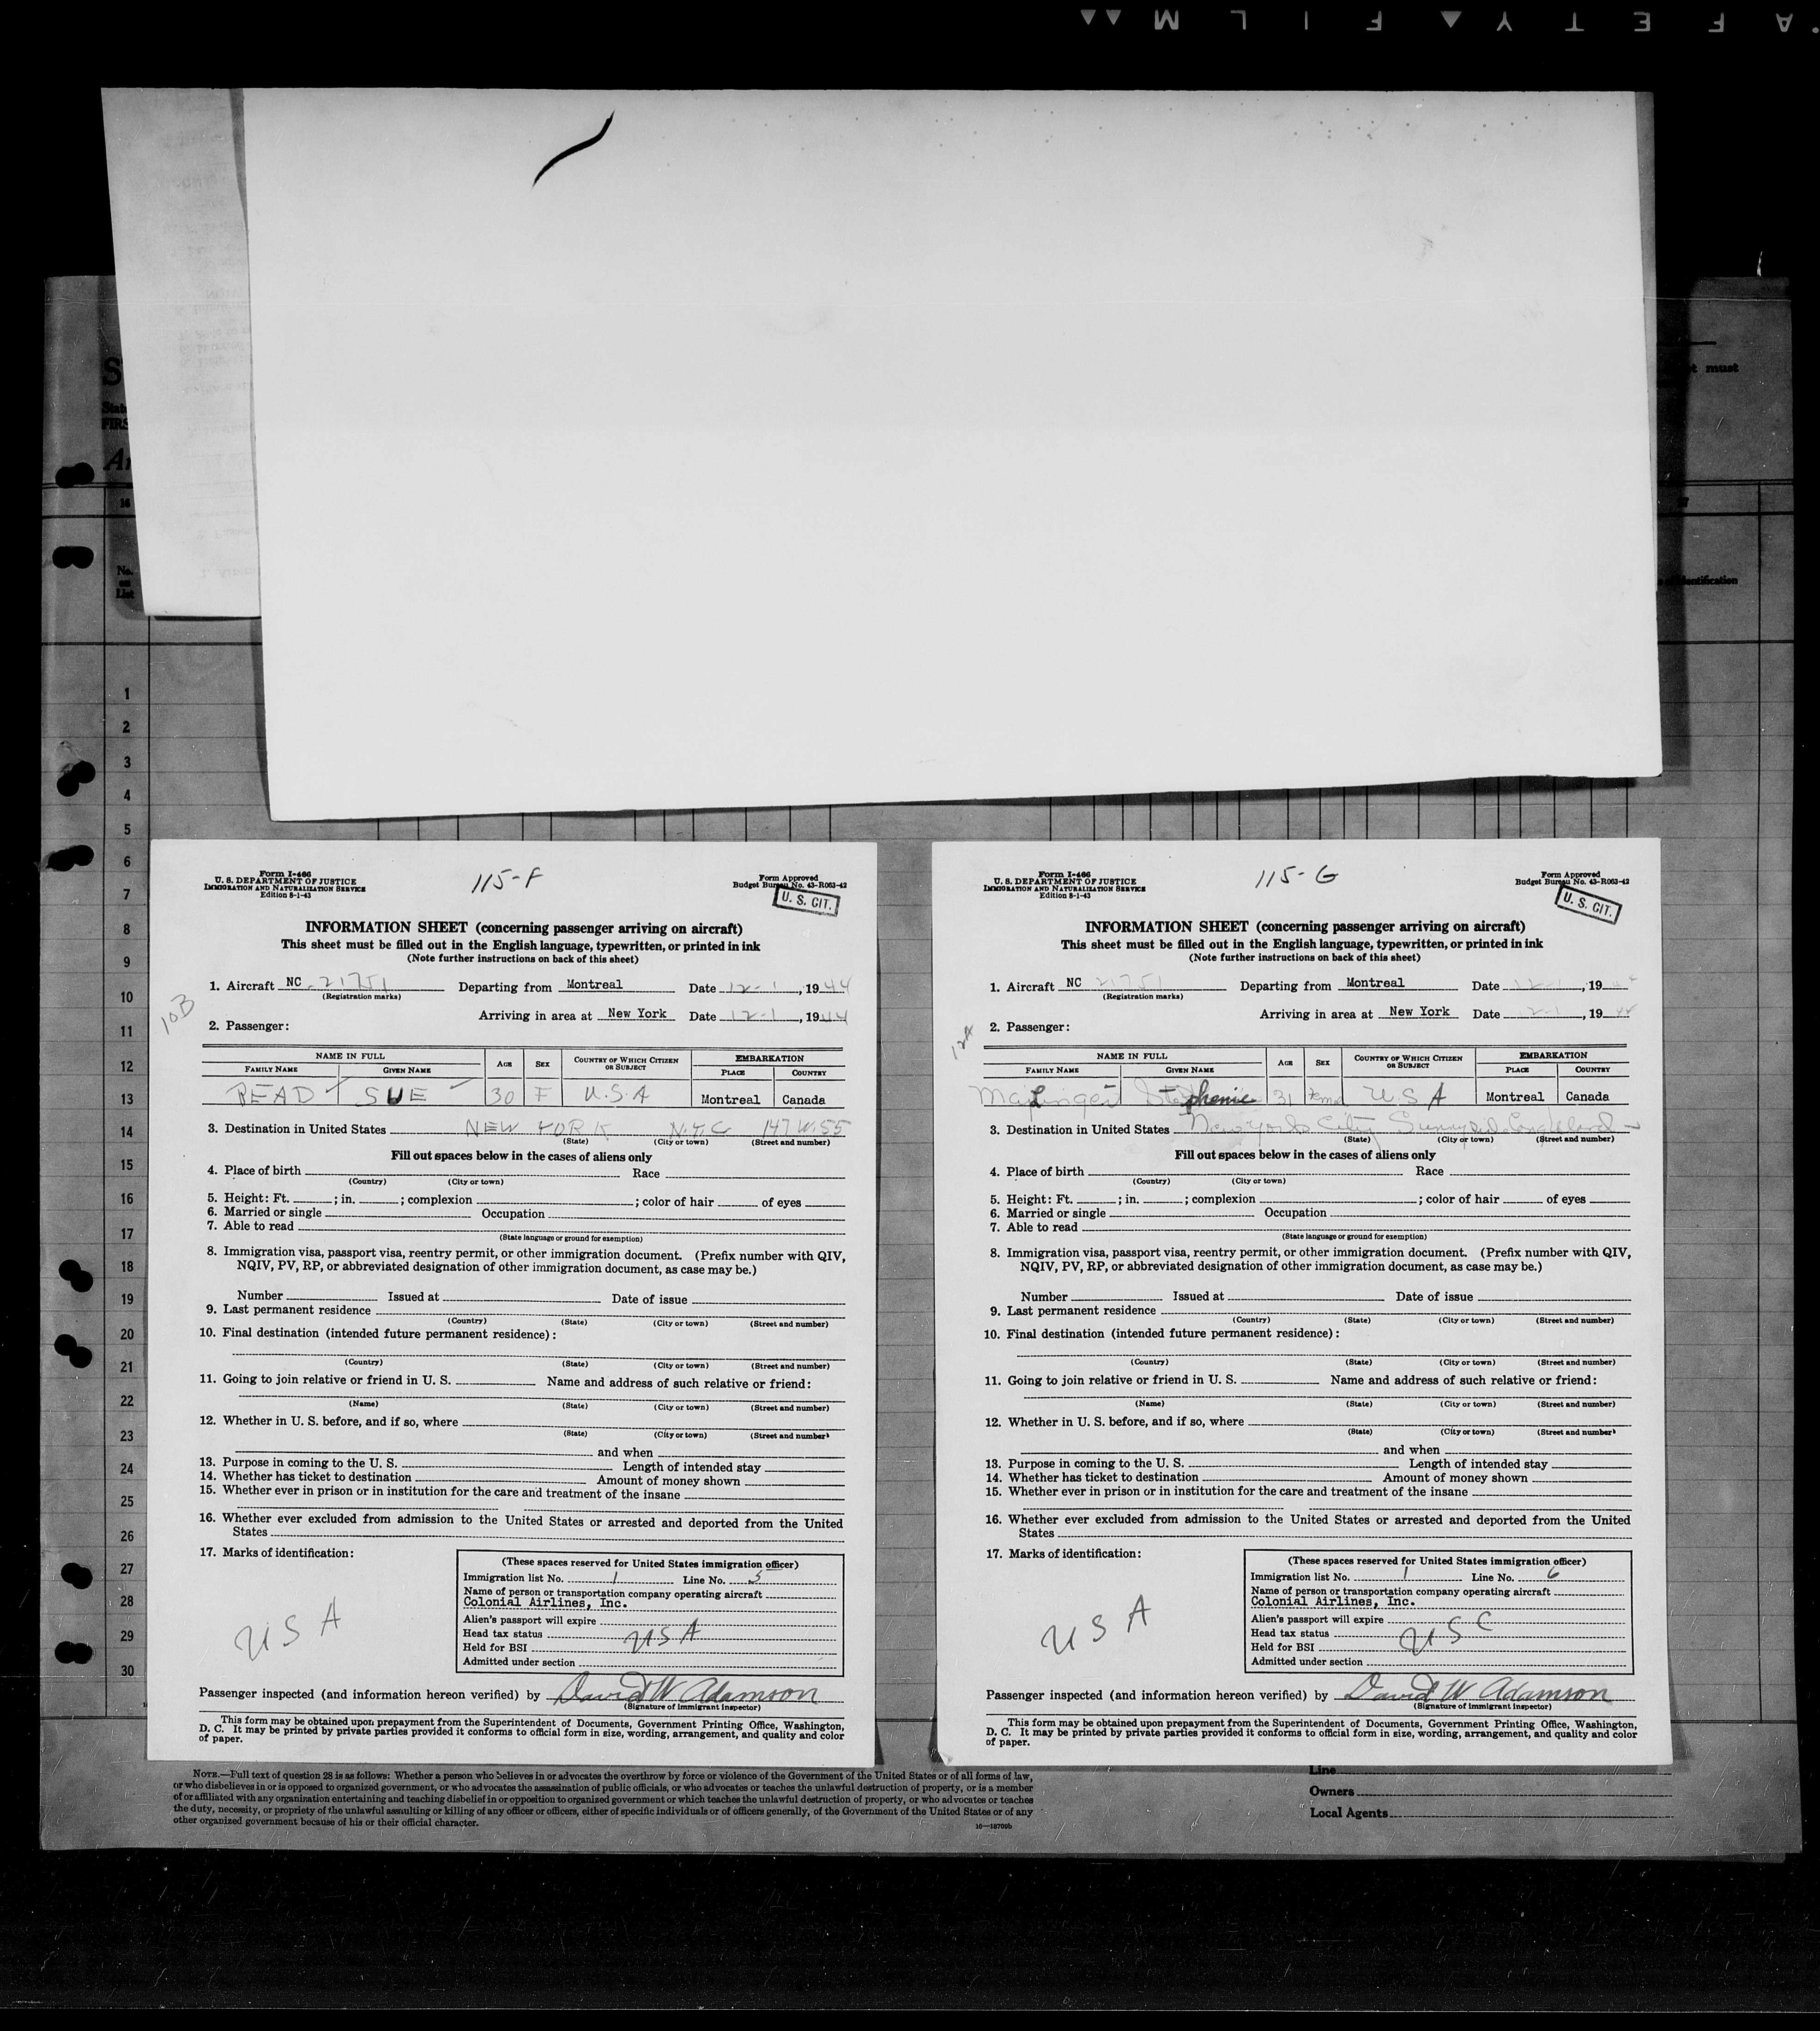 SAFETY FILM
16
No.
on
List
must
identification
1
2
3
4
5
6
7
8
9
10
11
12
13
14
15
16
17
18
19
20
21
22
23
24
25
26
27
28
29
30
Form I-466
U. S. DEPARTMENT OF JUSTICE
IMMIGRATION AND NATURALIZATION SERVICE
Edition 8-1-43
115-F
Form Approved
Budget Bureau No. 43-R063-42
U. S. CIT.
INFORMATION SHEET (concerning passenger arriving on aircraft)
This sheet must be filled out in the English language, typewritten, or printed in ink
(Note further instructions on back of this sheet)
1. Aircraft NC 21751 Departing from Montreal Date 12-1, 1944
(Registration marks)
Arriving in area at New York Date 12-1, 1944
10B
2. Passenger:
NAME IN FULL AGE SEX COUNTRY OF WHICH CITIZEN OR SUBJECT EMBARKATION
FAMILY NAME GIVEN NAME PLACE COUNTRY
READ SUE 30 F U.S.A Montreal Canada
3. Destination in United States NEW YORK N.Y.C 147 W.55
(State) (City or town) (Street and number)
Fill out spaces below in the cases of aliens only
4. Place of birth Race
(Country) (City or town)
5. Height: Ft. ; in. ; complexion ; color of hair of eyes
6. Married or single Occupation
7. Able to read
(State language or ground for exemption)
8. Immigration visa, passport visa, reentry permit, or other immigration document. (Prefix number with QIV,
NQIV, PV, RP, or abbreviated designation of other immigration document, as case may be.)
Number Issued at Date of issue
9. Last permanent residence
(Country) (State) (City or town) (Street and number)
10. Final destination (intended future permanent residence):
(Country) (State) (City or town) (Street and number)
11. Going to join relative or friend in U. S. Name and address of such relative or friend:
(Name) (State) (City or town) (Street and number)
12. Whether in U. S. before, and if so, where
(State) (City or town) (Street and number)
and when
13. Purpose in coming to the U. S. Length of intended stay
14. Whether has ticket to destination Amount of money shown
15. Whether ever in prison or in institution for the care and treatment of the insane
16. Whether ever excluded from admission to the United States or arrested and deported from the United
States
17. Marks of identification:
USA
(These spaces reserved for United States immigration officer)
Immigration list No. 1 Line No. 5
Name of person or transportation company operating aircraft
Colonial Airlines, Inc.
Alien's passport will expire
Head tax status USA
Held for BSI
Admitted under section
Passenger inspected (and information hereon verified) by David W Adamson
(Signature of immigrant inspector)
This form may be obtained upon prepayment from the Superintendent of Documents, Government Printing Office, Washington,
D. C. It may be printed by private parties provided it conforms to official form in size, wording, arrangement, and quality and color
of paper.
Form I-466
U. S. DEPARTMENT OF JUSTICE
IMMIGRATION AND NATURALIZATION SERVICE
Edition 8-1-43
115-G
Form Approved
Budget Bureau No. 43-R063-42
U. S. CIT.
INFORMATION SHEET (concerning passenger arriving on aircraft)
This sheet must be filled out in the English language, typewritten, or printed in ink
(Note further instructions on back of this sheet)
1. Aircraft NC 21751 Departing from Montreal Date 12-1, 19
(Registration marks)
Arriving in area at New York Date 12-1, 1944
2. Passenger:
NAME IN FULL AGE SEX COUNTRY OF WHICH CITIZEN OR SUBJECT EMBARKATION
FAMILY NAME GIVEN NAME PLACE COUNTRY
Stephenie 31 Fem U.S.A Montreal Canada
3. Destination in United States New York City
(State) (City or town) (Street and number)
Fill out spaces below in the cases of aliens only
4. Place of birth Race
(Country) (City or town)
5. Height: Ft. ; in. ; complexion ; color of hair of eyes
6. Married or single Occupation
7. Able to read
(State language or ground for exemption)
8. Immigration visa, passport visa, reentry permit, or other immigration document. (Prefix number with QIV,
NQIV, PV, RP, or abbreviated designation of other immigration document, as case may be.)
Number Issued at Date of issue
9. Last permanent residence
(Country) (State) (City or town) (Street and number)
10. Final destination (intended future permanent residence):
(Country) (State) (City or town) (Street and number)
11. Going to join relative or friend in U. S. Name and address of such relative or friend:
(Name) (State) (City or town) (Street and number)
12. Whether in U. S. before, and if so, where
(State) (City or town) (Street and number)
and when
13. Purpose in coming to the U. S. Length of intended stay
14. Whether has ticket to destination Amount of money shown
15. Whether ever in prison or in institution for the care and treatment of the insane
16. Whether ever excluded from admission to the United States or arrested and deported from the United
States
17. Marks of identification:
USA
(These spaces reserved for United States immigration officer)
Immigration list No. 1 Line No. 6
Name of person or transportation company operating aircraft
Colonial Airlines, Inc.
Alien's passport will expire
Head tax status USC
Held for BSI
Admitted under section
Passenger inspected (and information hereon verified) by David W Adamson
(Signature of immigrant inspector)
This form may be obtained upon prepayment from the Superintendent of Documents, Government Printing Office, Washington,
D. C. It may be printed by private parties provided it conforms to official form in size, wording, arrangement, and quality and color
of paper.
NOTE.—Full text of question 28 is as follows: Whether a person who believes in or advocates the overthrow by force or violence of the Government of the United States or of all forms of law,
or who disbelieves in or is opposed to organized government, or who advocates the assassination of public officials, or who advocates or teaches the unlawful destruction of property, or is a member
of or affiliated with any organization entertaining and teaching disbelief in or opposition to organized government or which teaches the unlawful destruction of property, or who advocates or teaches
the duty, necessity, or propriety of the unlawful assaulting or killing of any officer or officers, either of specific individuals or of officers generally, of the Government of the United States or of any
other organized government because of his or their official character.
16—18709b
Line
Owners
Local Agents